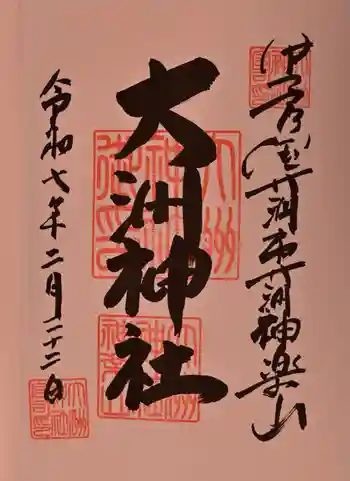 伊豫国大洲市大洲神楽山
大洲神社
令和七年二月二十二日